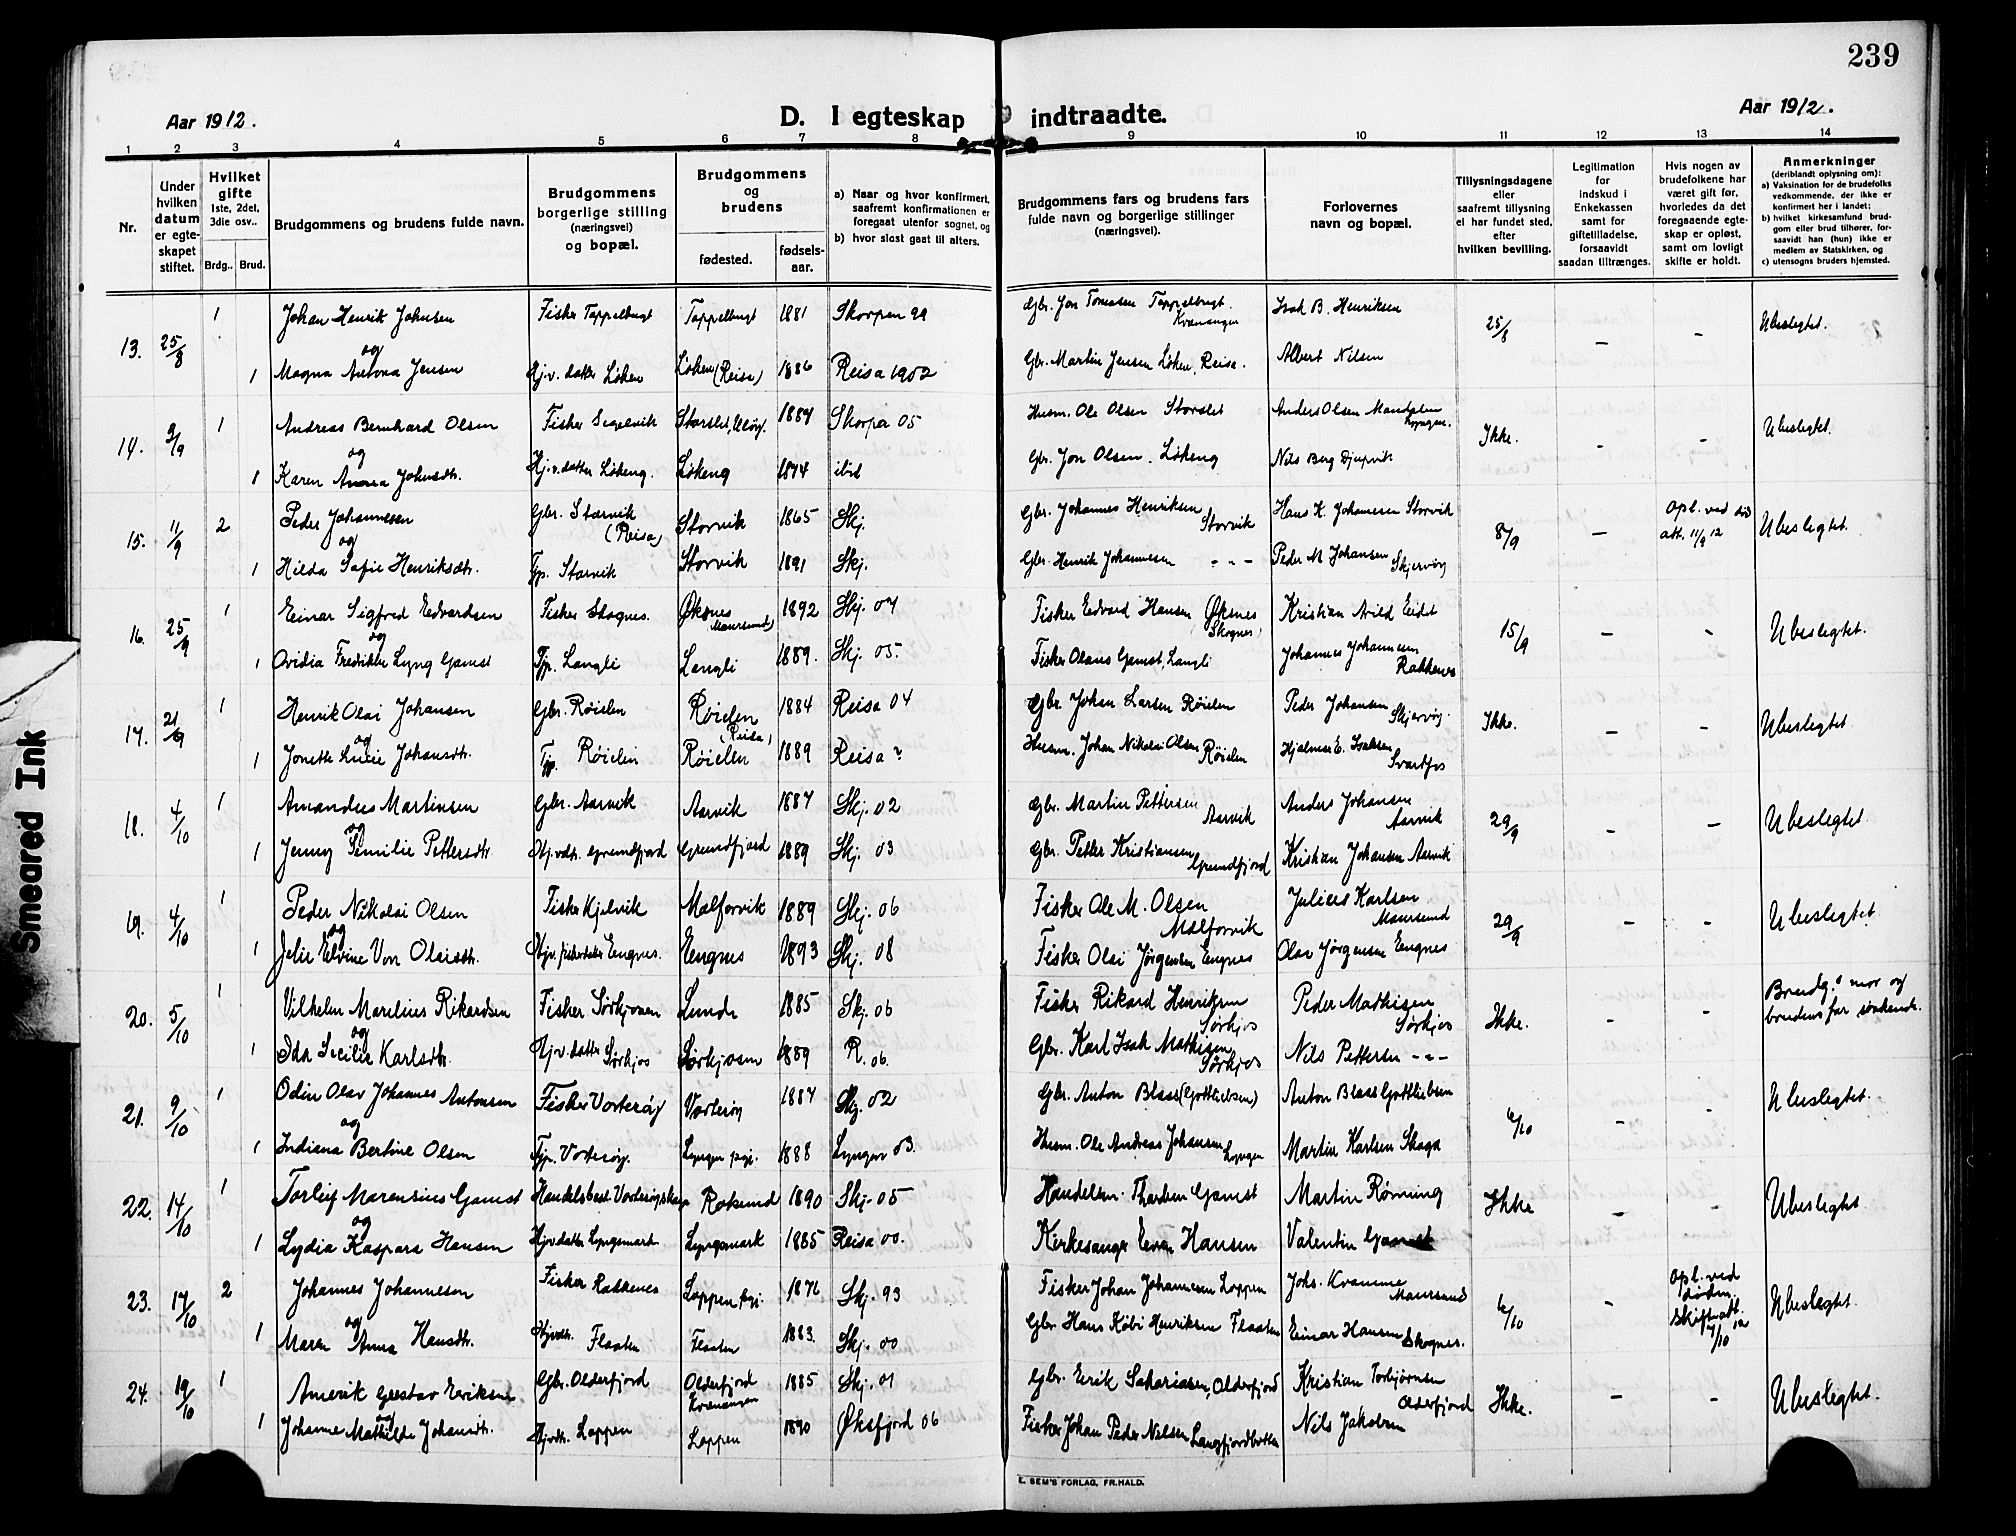 239
Aar 1912.
D. I egteskap indtraadte.
Aar 1912.
1 2 3 4 5 6 7 8 9 10 11 12 13 14
Nr.
Under hvilken datum er egteskapet stiftet.
Hvilket gifte 1ste, 2det, 3die osv..
Brdg.. Brud.
Brudgommens og brudens fulde navn.
Brudgommens borgerlige stilling (næringsvei) og bopæl.
Brudgommens og brudens
fødested. fødsels-aar.
a) Naar og hvor konfirmert, saafremt konfirmationen er foregaat utenfor sognet, og
b) hvor sidst gaat til alters.
Brudgommens fars og brudens fars fulde navn og borgerlige stillinger (næringsvei).
Forlovernes navn og bopæl.
Tillysningsdagene eller saafremt tillysning ei har fundet sted, efter hvilken bevilling.
Legitimation for indskud i Enkekassen samt for giftetilladelse, forsaavidt saadan tiltrænges.
Hvis nogen av brudefolkene har været gift før, hvorledes da det foregaaende egteskap er opløst, samt om lovligt skifte er holdt.
Anmerkninger (deriblandt oplysning om):
a) Vaksination for de brudefolks vedkommende, der ikke er konfirmert her i landet;
b) hvilket kirkesamfund brudgom eller brud tilhører, forsaavidt han (hun) ikke er medlem av Statskirken, og
c) utensogns bruders hjemsted.
13. 25/8 1 Johan Henrik Johnsen Fisker Tappelbugt Tappelbugt 1881 Skorpen 99 Gbr. Jon Tomasen Tappelbugt. Kvænangen Isak B. Henriksen 25/8 - - Ubeslegtet.
og
1 Magna Antona Jensen Hj.v. datter Løken Løken (Reisa) 1886 Reisa 1902 Gbr. Martin Jensen Løken, Reisa. Albert Nilsen
14. 3/9 1 Andreas Bernhard Olsen Fisker Segelvik Storslet, 1884 Skorpa 05 Husm. Ole Olsen Storslet Anders Olsen Mandalen Lyngen. Ikke. - - Ubeslegtet.
og
1 Karen Anna Johnsdtr. Hj.v. datter Løkeng. Løkeng 1874 ibid Gbr. Jon Olsen. Løkeng Nils Berg Djupvik
15. 11/9 2 Peder Johannesen Gbr. Storvik (Reisa) Storvik 1865 Skj. Gbr. Johannes Henriksen Storvik Hans K. Johannesen Storvik 8/9 - Opl. ved att. 11/9 12 Ubeslegtet.
og
1 Hilda Sofie Henriksdtr. Tjp. Storvik Storvik 1891 Skj. Gbr. Henrik Johannesen - " - Peder M Johansen Skjervøy
16. 25/9 1 Einar Sigfred Edvardsen Fisker Skognes. Øksnes Maursund 1892 Skj. 07 Fisker Edvard Hansen Øksnes (Skognes) Kristian Arild Eidet 15/9 - - Ubeslegtet.
og
1 Ovidia Fredrikke Lyng Gamst Tjp. Langli Langli 1889. Skj. 05. Fisker Olaus Gamst, Langli Johannes Johannesen Rakkenes
17. 21/9 1 Henrik Olai Johansen Gbr. Røielen Røielen (Reisa) 1884 Reisa 04 Gbr. Johan Larsen Røielen Peder Johansen Skjervøy Ikke. - - Ubeslegtet
og
1 Jonette Lucie Johansdtr. Tjp. Røielen Røielen 1889 Reisa? Husm. Johan Nikolai Olsen Røielen Hjalmer E. Isaksen Svartfos
18. 4/10 1 Amandus Martinsen Gbr. Aarvik Aarvik 1887 Skj. 02 Gbr. Martin Pettersen Aarvik Anders Johansen Aarvik 29/9 - - Ubeslegtet
og
1 Jenny Emilie Pettersdtr Hj.v.dtr. Grundfjord Grundfjord 1889 Skj. 03 Gbr. Petter Kristiansen Grundfjord Kristian Johansen Aarvik
19. 4/10 1 Peder Nikolai Olsen Fisker Kjelvik Malforvik 1889 Skj. 06 Fisker Ole M. Olsen Malforvik Julius Karlsen Maursund 29/9 - - Ubeslegtet
og
1 Jelie Elvine Von Olaisdtr. Hjv. Engnes. Engnes 1893 Skj. 08 Fisker Olai Jørgensen Engnes Olav Jørgensen Engnes
20. 5/10 1 Vilhelm Marelius Rikardsen Fisker Sørkjosen Lunde 1885 Skj. 06 Fisker Rikard Henriksen Sørkjos Peder Mathisen Sørkjos Ikke. - - Brudg.s mor og brudens far søskende.
og
1 Ida Secilie Karlsdtr. Hj.v. datter Sørkjos Sørkjosen 1889 R. 06. Gbr. Karl Isak Mathisen Sørkjos Nils Pettersen - " -
21. 9/10 1 Odin Olav Johannes Antonsen Fisker Vorterøy Vorterøy 1887 Skj. 02 Gbr. Anton Blass (Gottliebsen) Anton Blass Gottliebsen 6/10 - - Ubeslegtet.
og
1 Indiana Bertine Olsen Tjp. Vorterøy. Lyngen pgj. 1888 Lyngen 03. Husm. Ole Andreas Johansen Lyngen Martin Karlsen Skaga
22. 14/10 1 Torleif Marensius Gamst Handelsbest. Vorterøyskagen Roksund 1890 Skj. 05 Handelsm. Gamst Martin Rørning Ikke - - Ubeslegtet
og
1 Lydia Kaspara Hansen Hjv.datter Lyngsmark Lyngsmark 1885 Reisa 00. Kirkesanger Hansen Valentin Gamst
23. 17/10 2 Johannes Johannesen Fisker Rakkenes Loppen pgj. 1876 Skj. 93 Fisker Johan Johannesen Loppen Johs. Kvamme Maursund 6/10 - Opl. ved døden. Skifteatt. 7/10 12 Ubeslegtet.
og
1 Maren Anna Hansdtr. Hjvdtr. Flaaten Flaaten 1883. Skj. 00 Gbr Hans Købi Henriksen Flaaten Einar Hansen Skognes.
24. 19/10 1 Amerik Gustav Eriksen Gbr. Olderfjord Olderfjord Kvænangen 1885 Skj. 01 Gbr. Erik Sakariasen, Olderfjord Kristian Torbjørnsen Olderfjord Ikke. - - Ubeslegtet.
og
1 Johanne Mathilde Johansdtr. Hjvdtr. Loppen Loppen 1890 Øksfjord 06 Fisker Johan Peder Nilsen Langfjordbotten Nils Jakobsen
E. SEM'S FORLAG, FR.HALD.
Smeared Ink